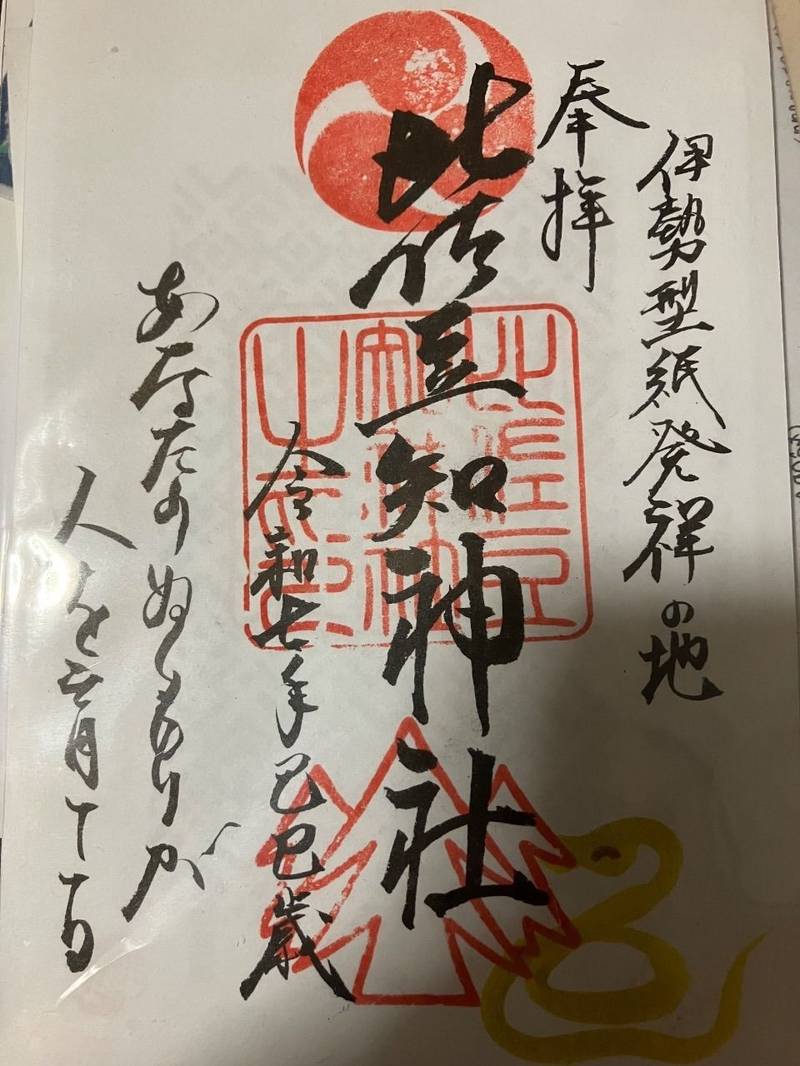 伊勢型紙発祥の地
奉拝
比佐豆知神社
令和七年己巳歳
あなたのぬくもりが
人を育てる